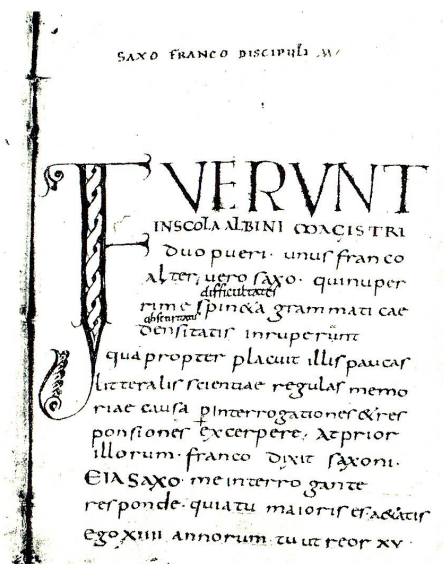 SAXO FRANCO DISCIPULI M
FUERUNT
IN SCOLA ALBINI MAGISTRI
duo pueri · unus franco
alter vero saxo · qui nuper
difficultates
rime spineta grammaticae
obscuritatis
densitatis inruperunt
quapropter placuit illis paucas
litteralis scientiae regulas memo
riae causa p interrogationes & res
ponsiones excerpere. At prior
illorum · franco dixit saxoni ·
EIA SAXO · me interrogante
responde · quia tu maioris es aetatis
Ego XIIII annorum tu ut reor XV ·